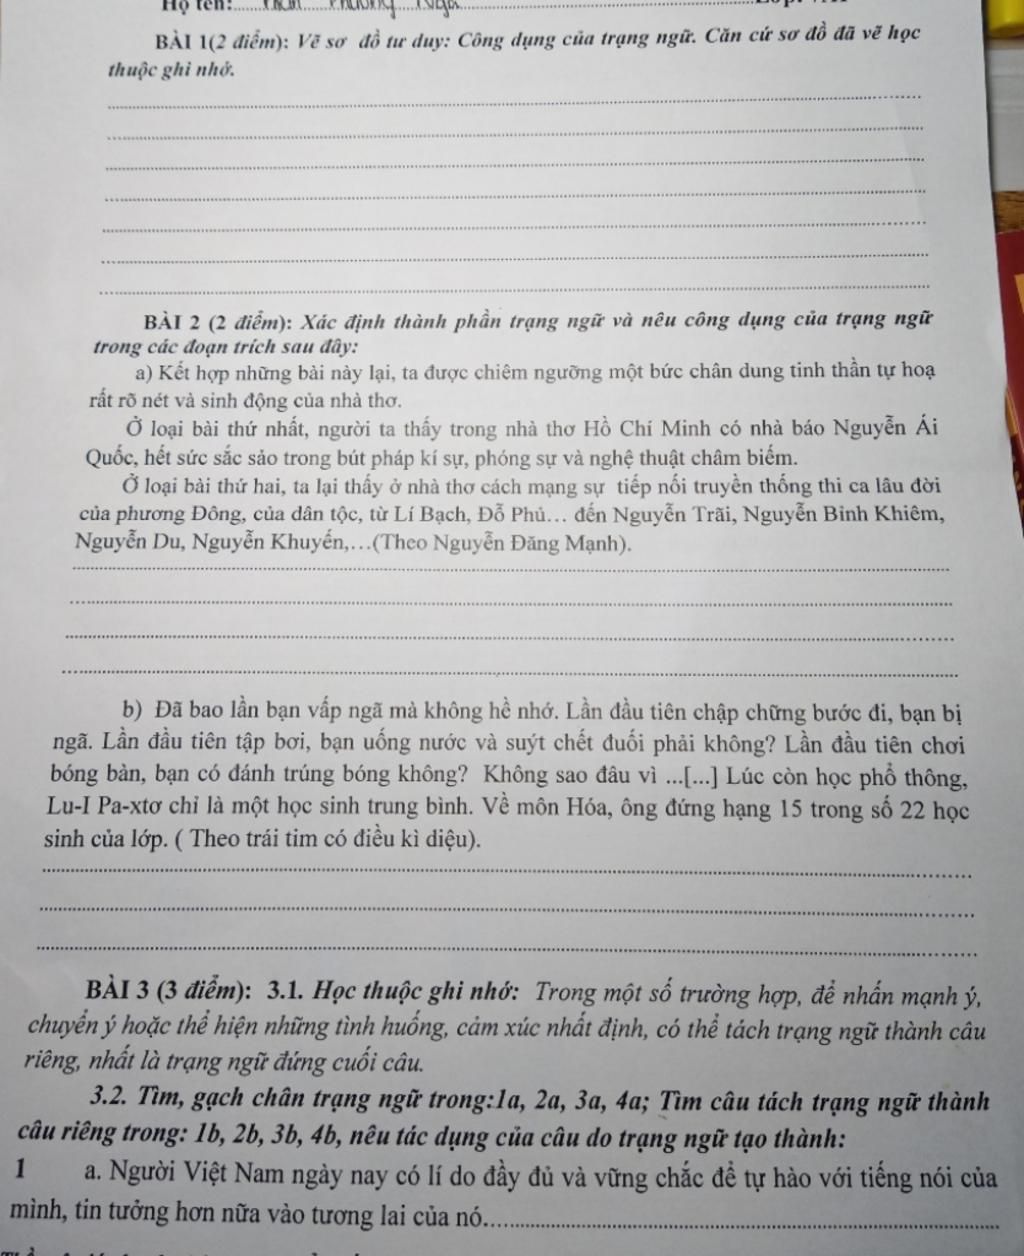 Họ tên: Phương Nga
BÀI 1(2 điểm): Vẽ sơ đồ tư duy: Công dụng của trạng ngữ. Căn cứ sơ đồ đã vẽ học
thuộc ghi nhớ.
BÀI 2 (2 điểm): Xác định thành phần trạng ngữ và nêu công dụng của trạng ngữ
trong các đoạn trích sau đây:
a) Kết hợp những bài này lại, ta được chiêm ngưỡng một bức chân dung tinh thần tự hoạ
rất rõ nét và sinh động của nhà thơ.
Ở loại bài thứ nhất, người ta thấy trong nhà thơ Hồ Chí Minh có nhà báo Nguyễn Ái
Quốc, hết sức sắc sảo trong bút pháp kí sự, phóng sự và nghệ thuật châm biếm.
Ở loại bài thứ hai, ta lại thấy ở nhà thơ cách mạng sự tiếp nối truyền thống thi ca lâu đời
của phương Đông, của dân tộc, từ Lí Bạch, Đỗ Phủ... đến Nguyễn Trãi, Nguyễn Bỉnh Khiêm,
Nguyễn Du, Nguyễn Khuyến,...(Theo Nguyễn Đăng Mạnh).
b) Đã bao lần bạn vấp ngã mà không hề nhớ. Lần đầu tiên chập chững bước đi, bạn bị
ngã. Lần đầu tiên tập bơi, bạn uống nước và suýt chết đuối phải không? Lần đầu tiên chơi
bóng bàn, bạn có đánh trúng bóng không? Không sao đâu vì ...[...] Lúc còn học phổ thông,
Lu-I Pa-xtơ chỉ là một học sinh trung bình. Về môn Hóa, ông đứng hạng 15 trong số 22 học
sinh của lớp. ( Theo trái tim có điều kì diệu).
BÀI 3 (3 điểm): 3.1. Học thuộc ghi nhớ: Trong một số trường hợp, để nhấn mạnh ý,
chuyển ý hoặc thể hiện những tình huống, cảm xúc nhất định, có thể tách trạng ngữ thành câu
riêng, nhất là trạng ngữ đứng cuối câu.
3.2. Tìm, gạch chân trạng ngữ trong:1a, 2a, 3a, 4a; Tìm câu tách trạng ngữ thành
câu riêng trong: 1b, 2b, 3b, 4b, nêu tác dụng của câu do trạng ngữ tạo thành:
1 a. Người Việt Nam ngày nay có lí do đầy đủ và vững chắc để tự hào với tiếng nói của
mình, tin tưởng hơn nữa vào tương lai của nó.